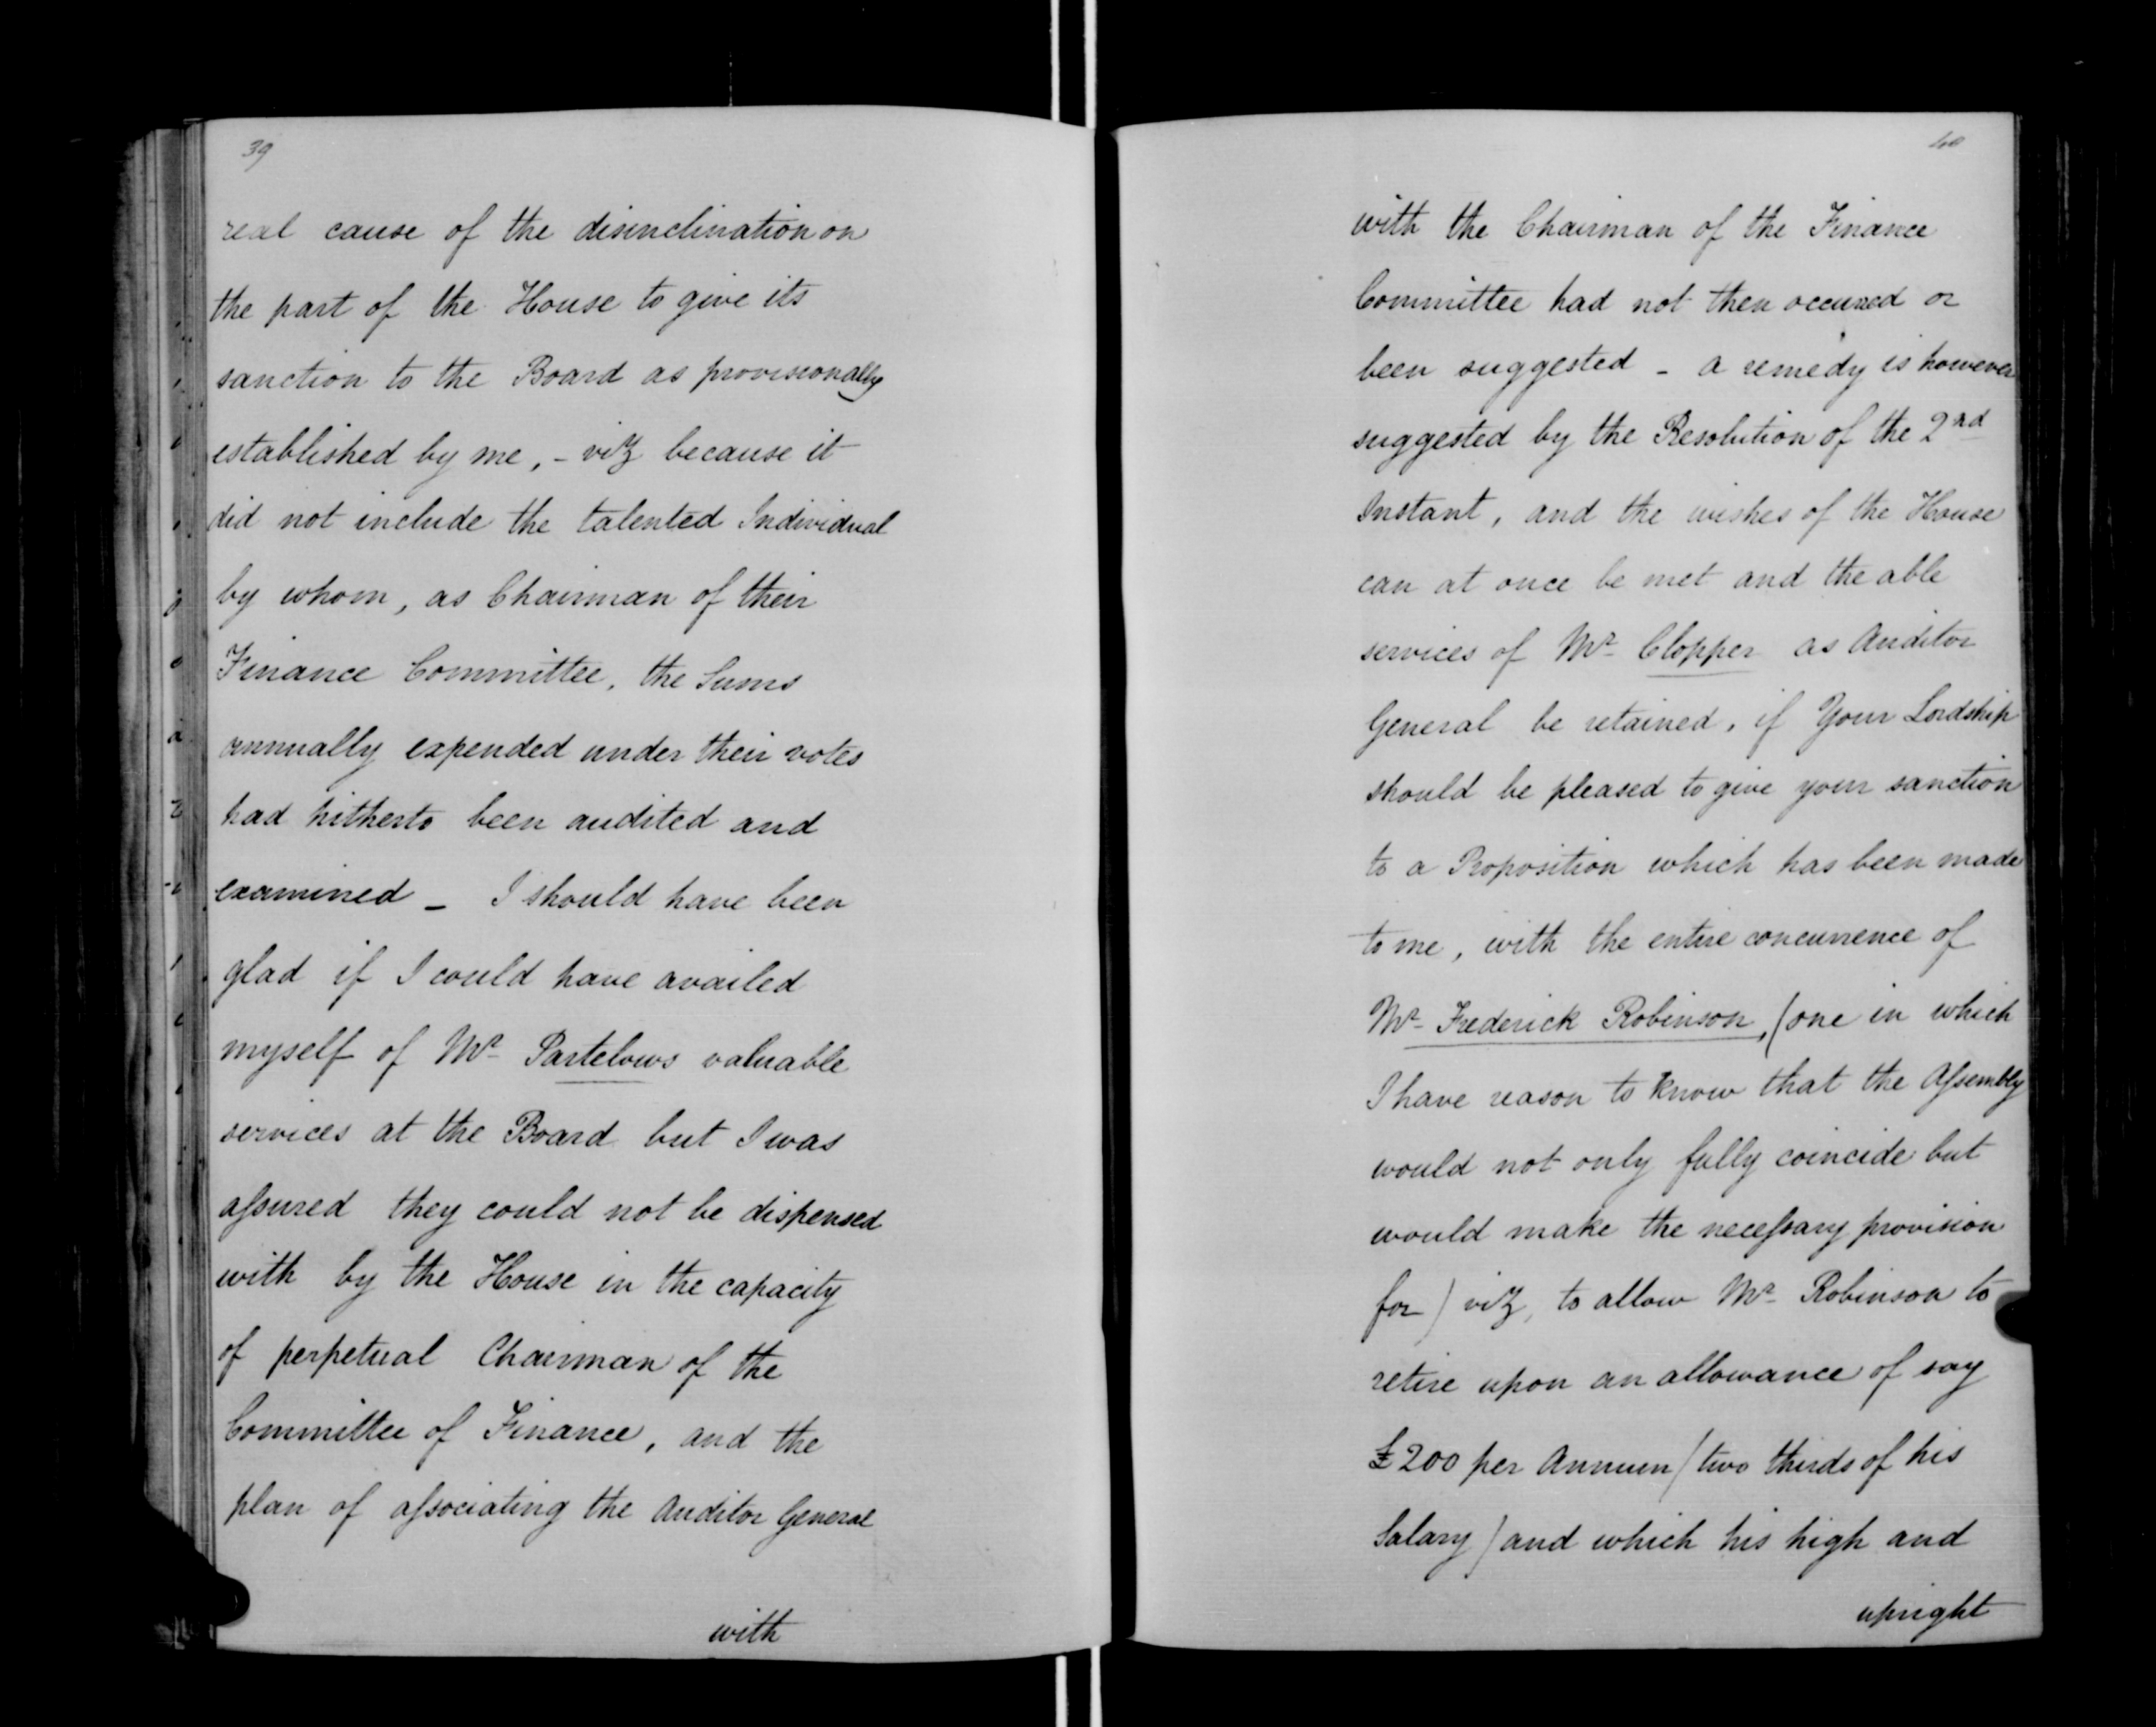 39
real cause of the disinclination on
the part of the House to give its
sanction to the Board as provisionally
established by me, - viz because it
did not include the talented Individual
by whom, as Chairman of their
Finance Committee, the Sums
annually expended under their votes
had hitherto been audited and
examined - I should have been
glad if I could have availed
myself of Mr Partelows valuable
services at the Board but I was
assured they could not be dispensed
with by the House in the capacity
of perpetual Chairman of the
Committee of Finance, and the
plan of associating the Auditor General
with
40
with the Chairman of the Finance
Committee had not then occured or
been suggested - a remedy is however
suggested by the Resolution of the 2nd
Instant, and the wishes of the House
can at once be met and the able
services of Mr Clopper as Auditor
General be retained, if Your Lordship
should be pleased to give your sanction
to a Proposition which has been made
to me, with the entire concurrence of
Mr Frederick Robinson, (one in which
I have reason to know that the Assembly
would not only fully coincide but
would make the necessary provision
for) viz, to allow Mr Robinson to
retire upon an allowance of say
£200 per Annum (two thirds of his
Salary) and which his high and
upright